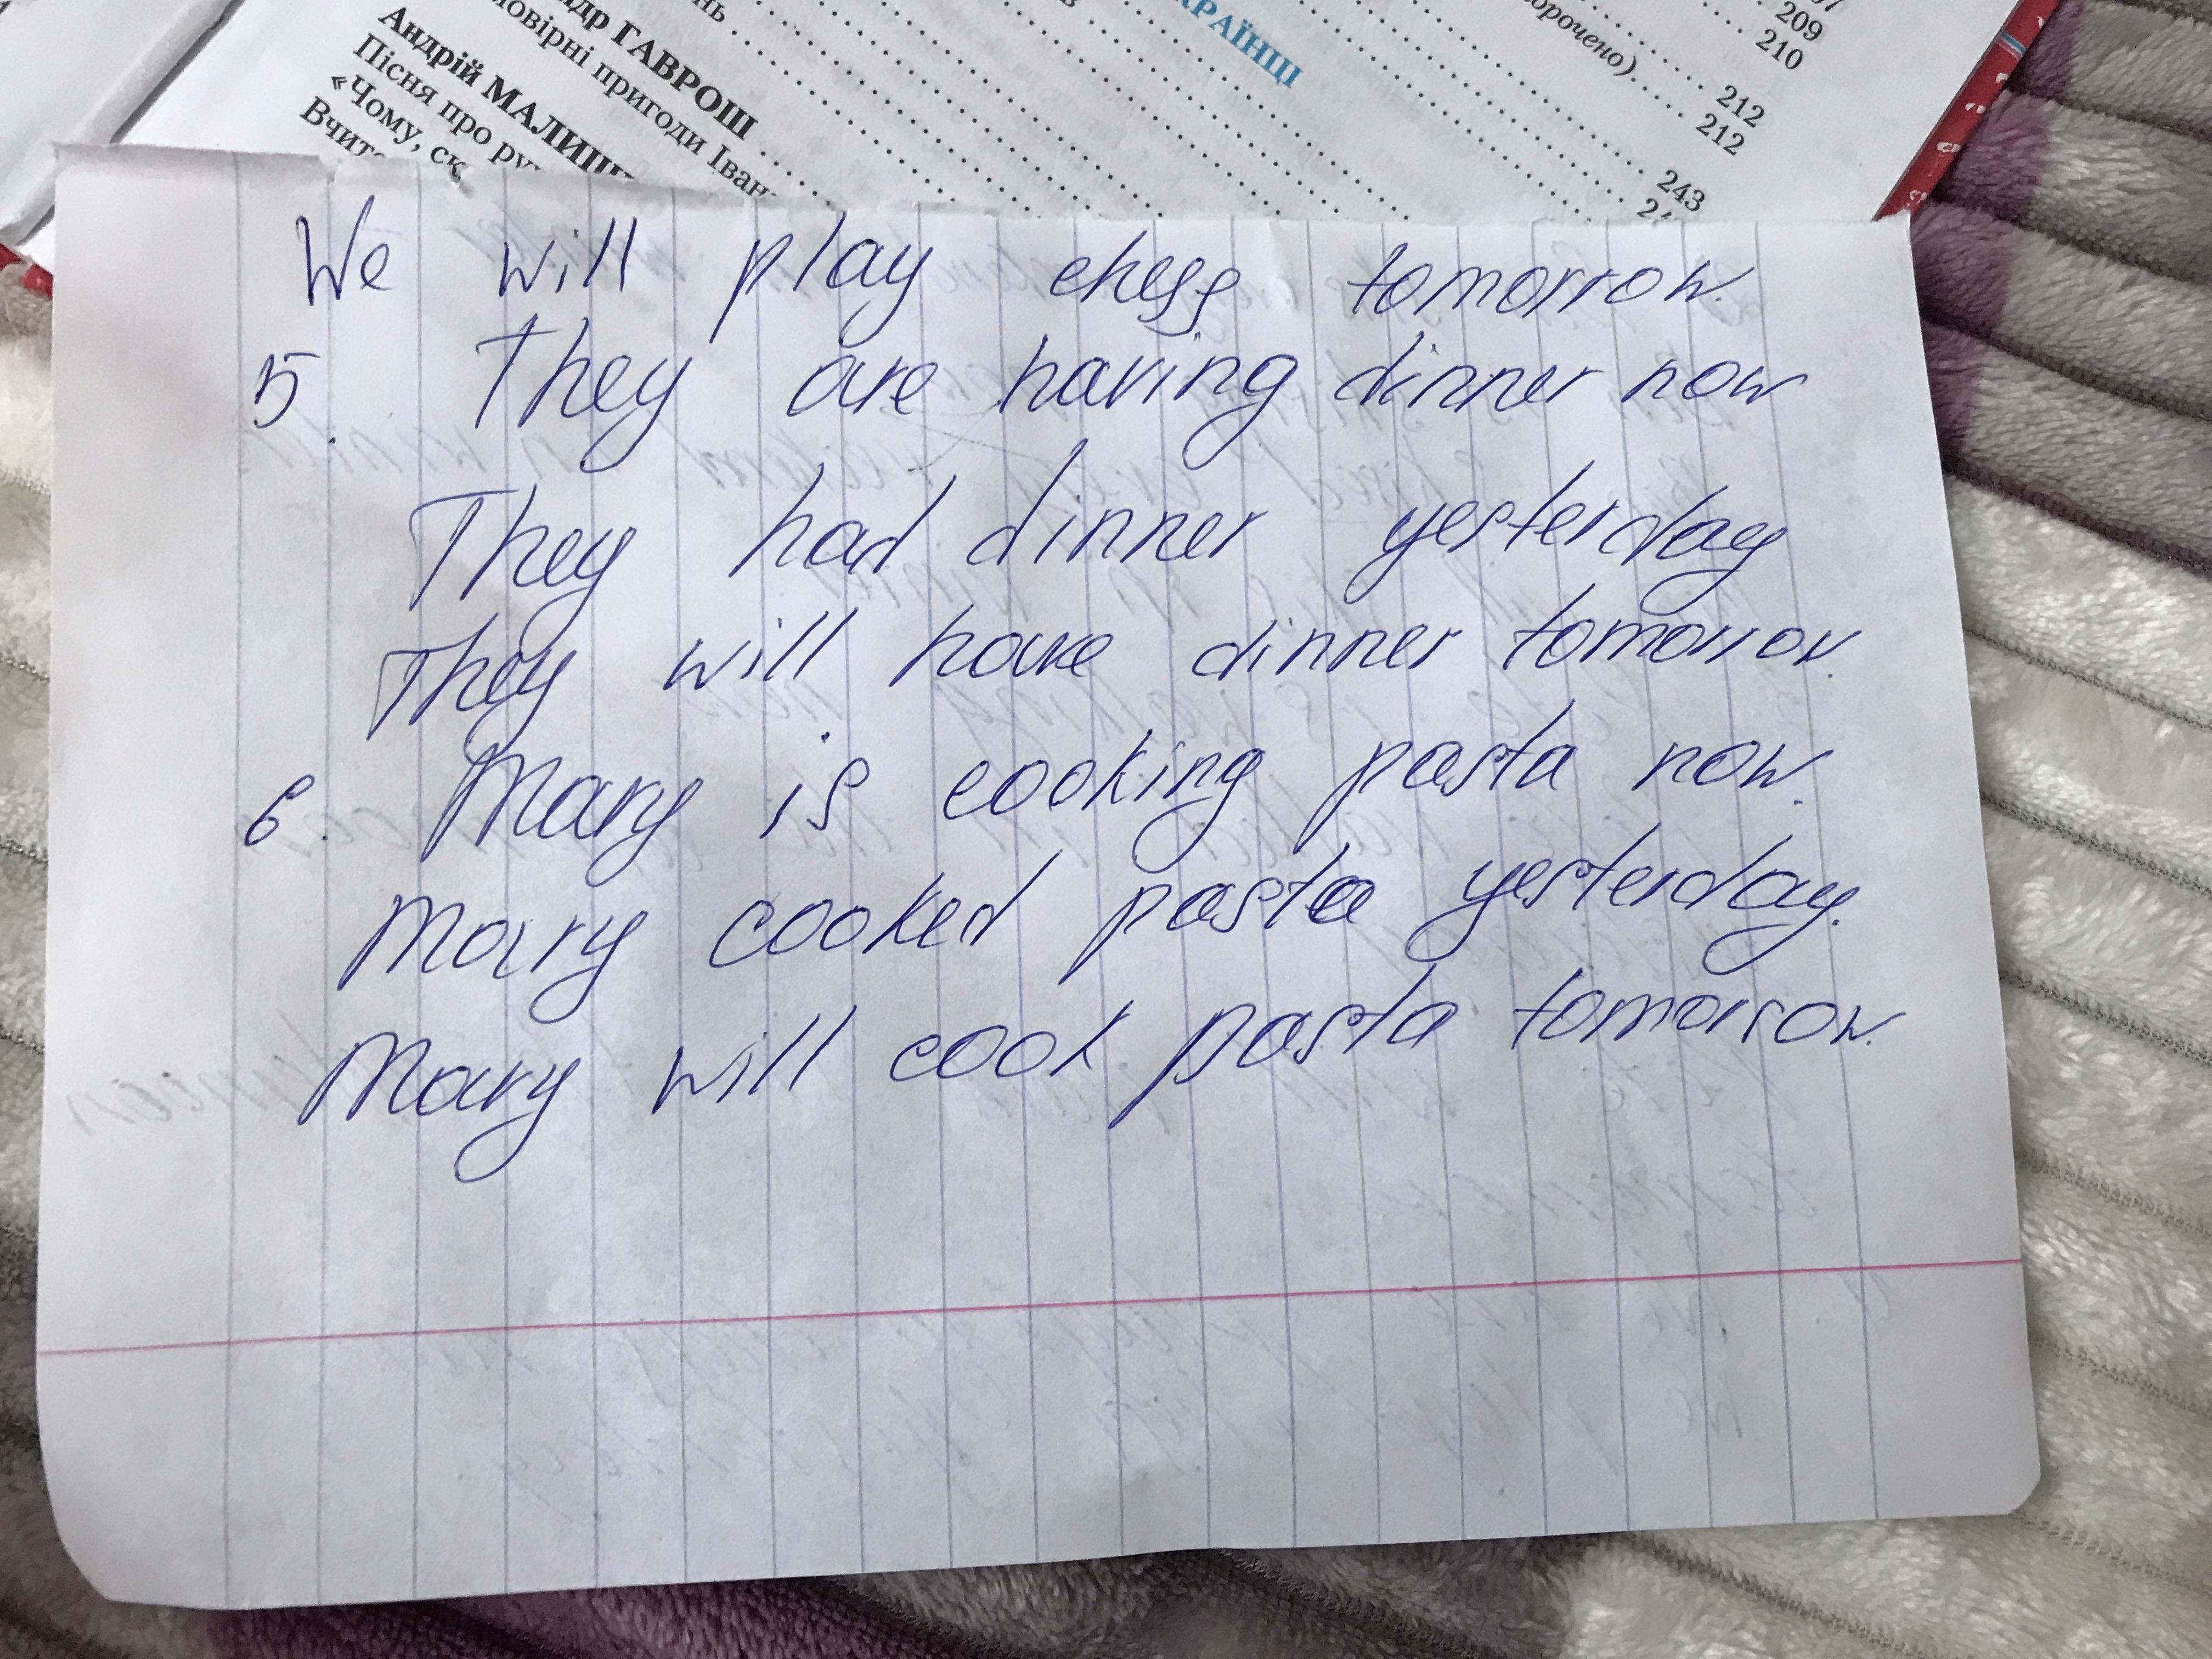 ндр ГАВРОШ
мовірні пригоди Іван
Андрій МАЛИШ
Пісня про ру
«Чому, ск
Вчит
нь
КРАЇНЦІ
орочено)
209
210
212
212
243
We will play chess tomorrow.
5. They are having dinner now
They had dinner yesterday
They will have dinner tomorrow.
6. Mary is cooking pasta now.
Mary cooked pasta yesterday.
Mary will cook pasta tomorrow.